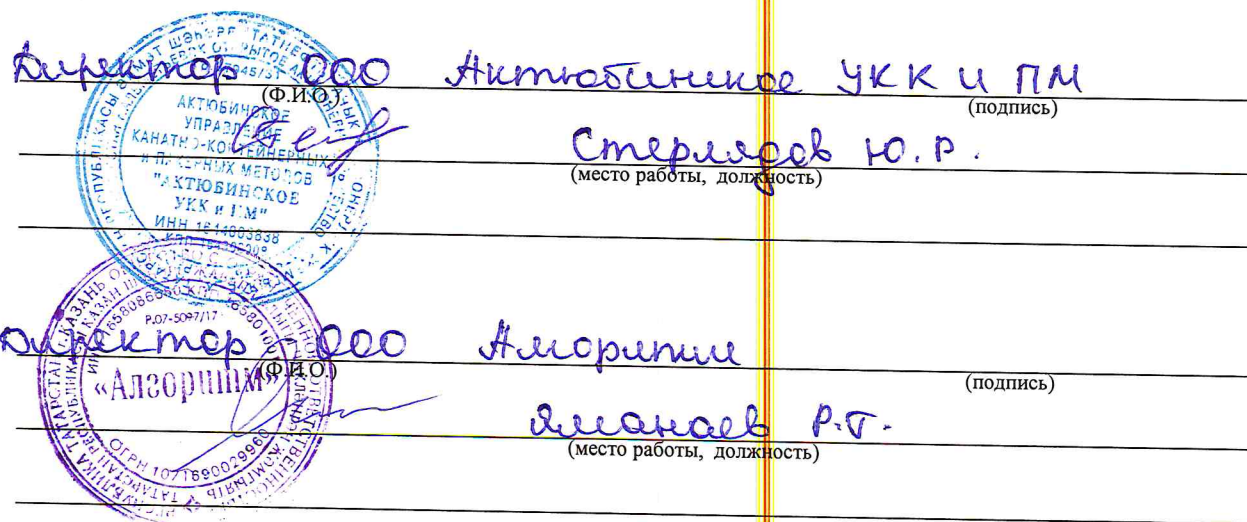 Директор ООО Актюбинское УКК и ПМ
(Ф.И.О.) (подпись)
Стерлядов Ю.Р.
(место работы, должность)
АКТЮБИНСКОЕ
УПРАВЛЕНИЕ
КАНАТНО-КОНТЕЙНЕРНЫХ
МЕТОДОВ
"АКТЮБИНСКОЕ
УКК и ПМ"
ИНН
Директор ООО Алгоритм
(Ф.И.О.) (подпись)
Яманаев Р.Г.
(место работы, должность)
Р.07-5097/17
«Алгоритм»
ОГРН 1071690029960